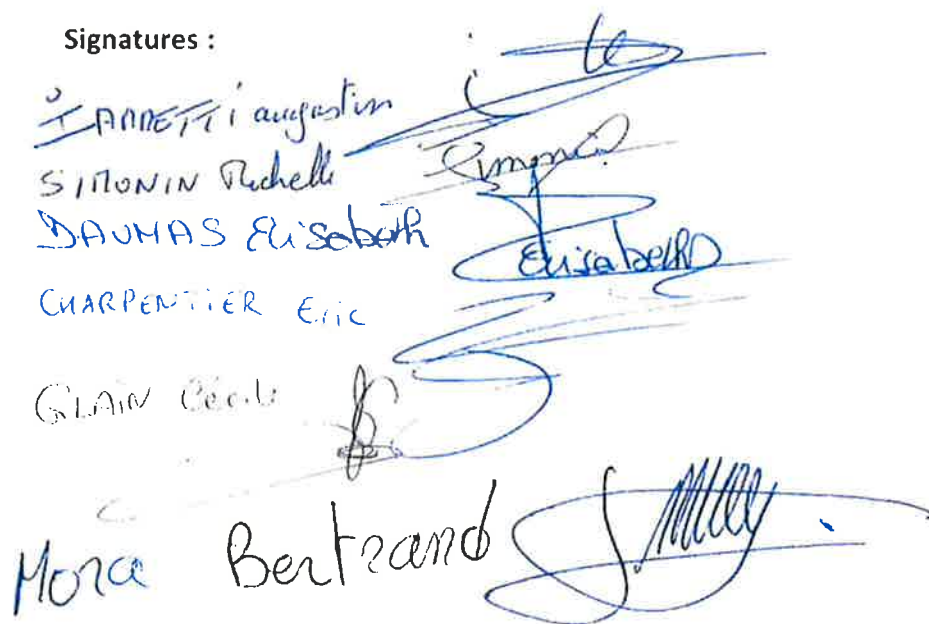 Signatures :
IARRETTi augustin
SIMONIN Michelle Simonin
DAUMAS Elisabeth Elisabeth
CHARPENTIER Eric
GLAIN Cécile
Mora Bertrand